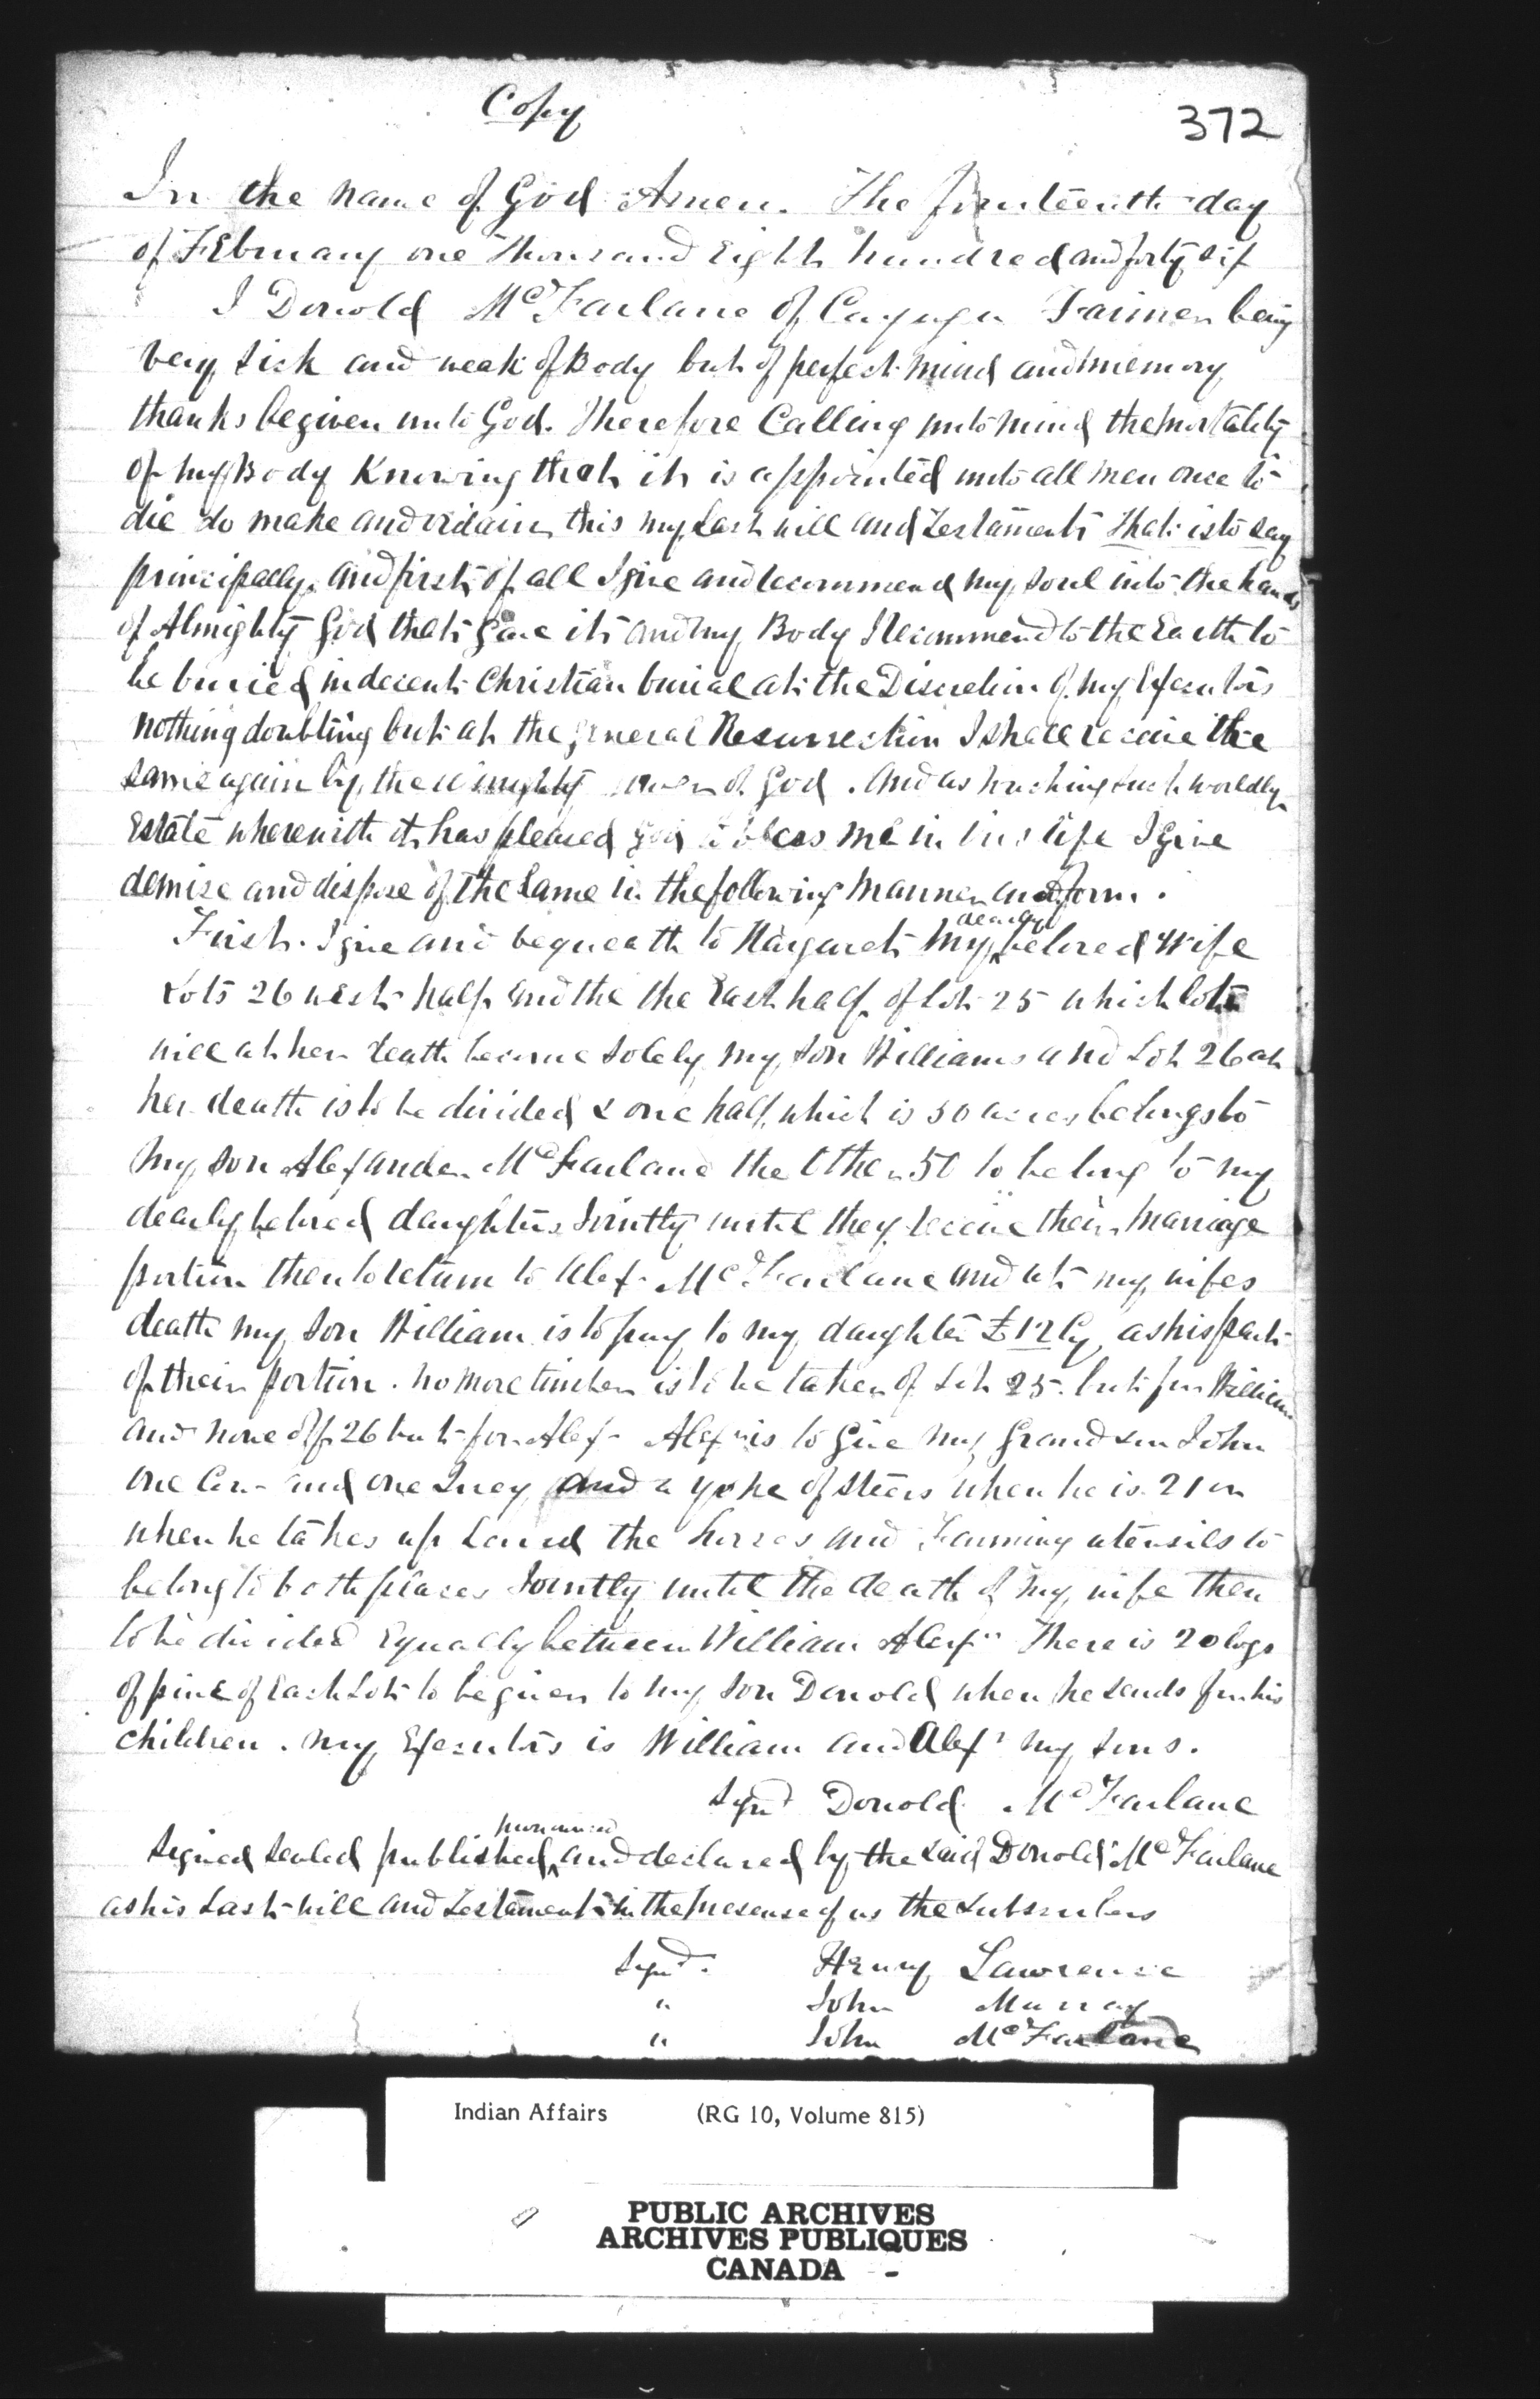 Copy
372
In the name of God Amen. The fourteenth day
of February one Thousand Eight hundred and forty six
I Donold McFarlane of Cayuga Farmer being
very sick and weak of Body but of perfect mind and memory
thanks be given unto God. Therefore Calling unto mind the mortality
of my Body Knowing that it is appointed unto all men once to
die do make and ordain this my Last will and Testament That is to say
principally. and first of all I give and recommend my soul into the hands
of Almighty God that gave it and my Body I Recommend to the Earth to
be buried in decent Christian burial at the Discretion of my Executors
nothing doubting but at the general Resurrection I shall receive the
same again by the almighty power of God. And as touching such worldly
Estate wherewith it has pleased God to bless me in this life I give
demise and dispose of the same in the following manner and form.
First. I give and bequeath to Margaret my dearly beloved wife
Lots 26 west half and the the East half of lot 25 which lots
will at her death become solely my son Williams and Lot 26 at
her death is to be divided & one half which is 50 acres belongs to
my son Alexander McFarlane the Other 50 to belong to my
dearly beloved daughters Jointly until they receive their marriage
portion then to return to Alexr McFarlane and at my wifes
death my son William is to pay to my daughters £12 Cy as his part
of their portion. no more timber is to be taken of Lot 25. but for William
and none off 26 but for Alexr Alexr is to give my Grandson John
one Cow and one Quey and a yoke of steers when he is 21 or
when he takes up Land the horses and Farming utensils to
belong to both places Jointly until the death of my wife then
to be divided Equally between William Alexr There is 20 logs
of pine of each Lot to be given to my son Donold when he sends for his
children. my Executors is William and Alexr my sons.
Signd Donold McFarlane
Signed Sealed published pronounced and declared by the said Donold McFarlane
as his Last will and Testament in the presense of us the subscribers
Signd. Henry Lawrence
" John Murray
" John McFarlane
Indian Affairs (RG 10, Volume 815)
PUBLIC ARCHIVES
ARCHIVES PUBLIQUES
CANADA